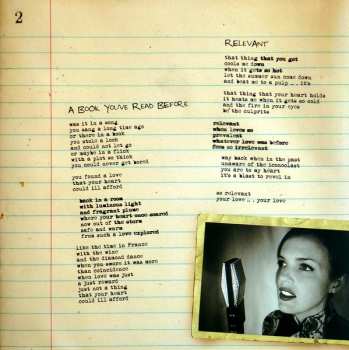 2
A BOOK YOU'VE READ BEFORE
was it in a song
you sang a long time ago
or there in a book
you stole a look
and could not let go
or maybe in a flick
with a plot so thick
you could never get bored
you found a love
that your heart
could ill afford
back in a room
with luminous light
and fragrant plume
where your heart once soared
now out of the storm
safe and warm
from such a love explored
like the time in France
with the wine
and the diamond dance
when you swore it was more
than coincidence
when love was just
a just reward
just not a thing
that your heart
could ill afford
RELEVANT
that thing that you got
cools me down
when it gets so hot
let the summer sun come down
and beat me to a pulp ... it's
that thing that your heart holds
it heats me when it gets so cold
and the fire in your eyes
be the culprit
relevant
when loves so
prevalent
whatever love was before
from so irrelevant
way back when in the past
unaware of the iconoclast
you are to my heart
it's a blast to revel in
so relevant
your love ... your love